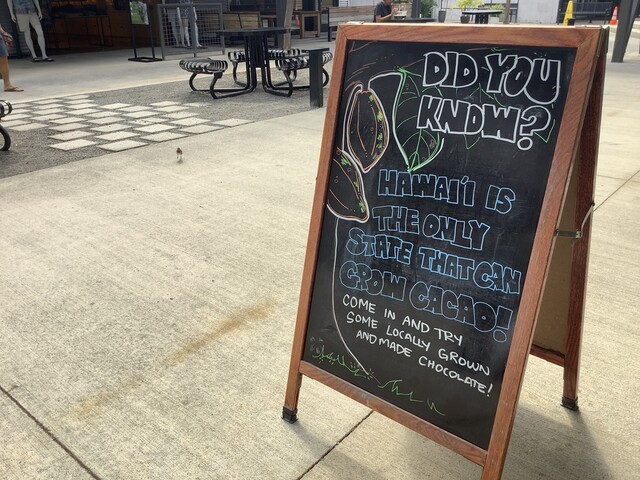 DID YOU
KNOW?
HAWAI'I IS
THE ONLY
STATE THAT CAN
GROW CACAO!
COME IN AND TRY
SOME LOCALLY GROWN
AND MADE CHOCOLATE!